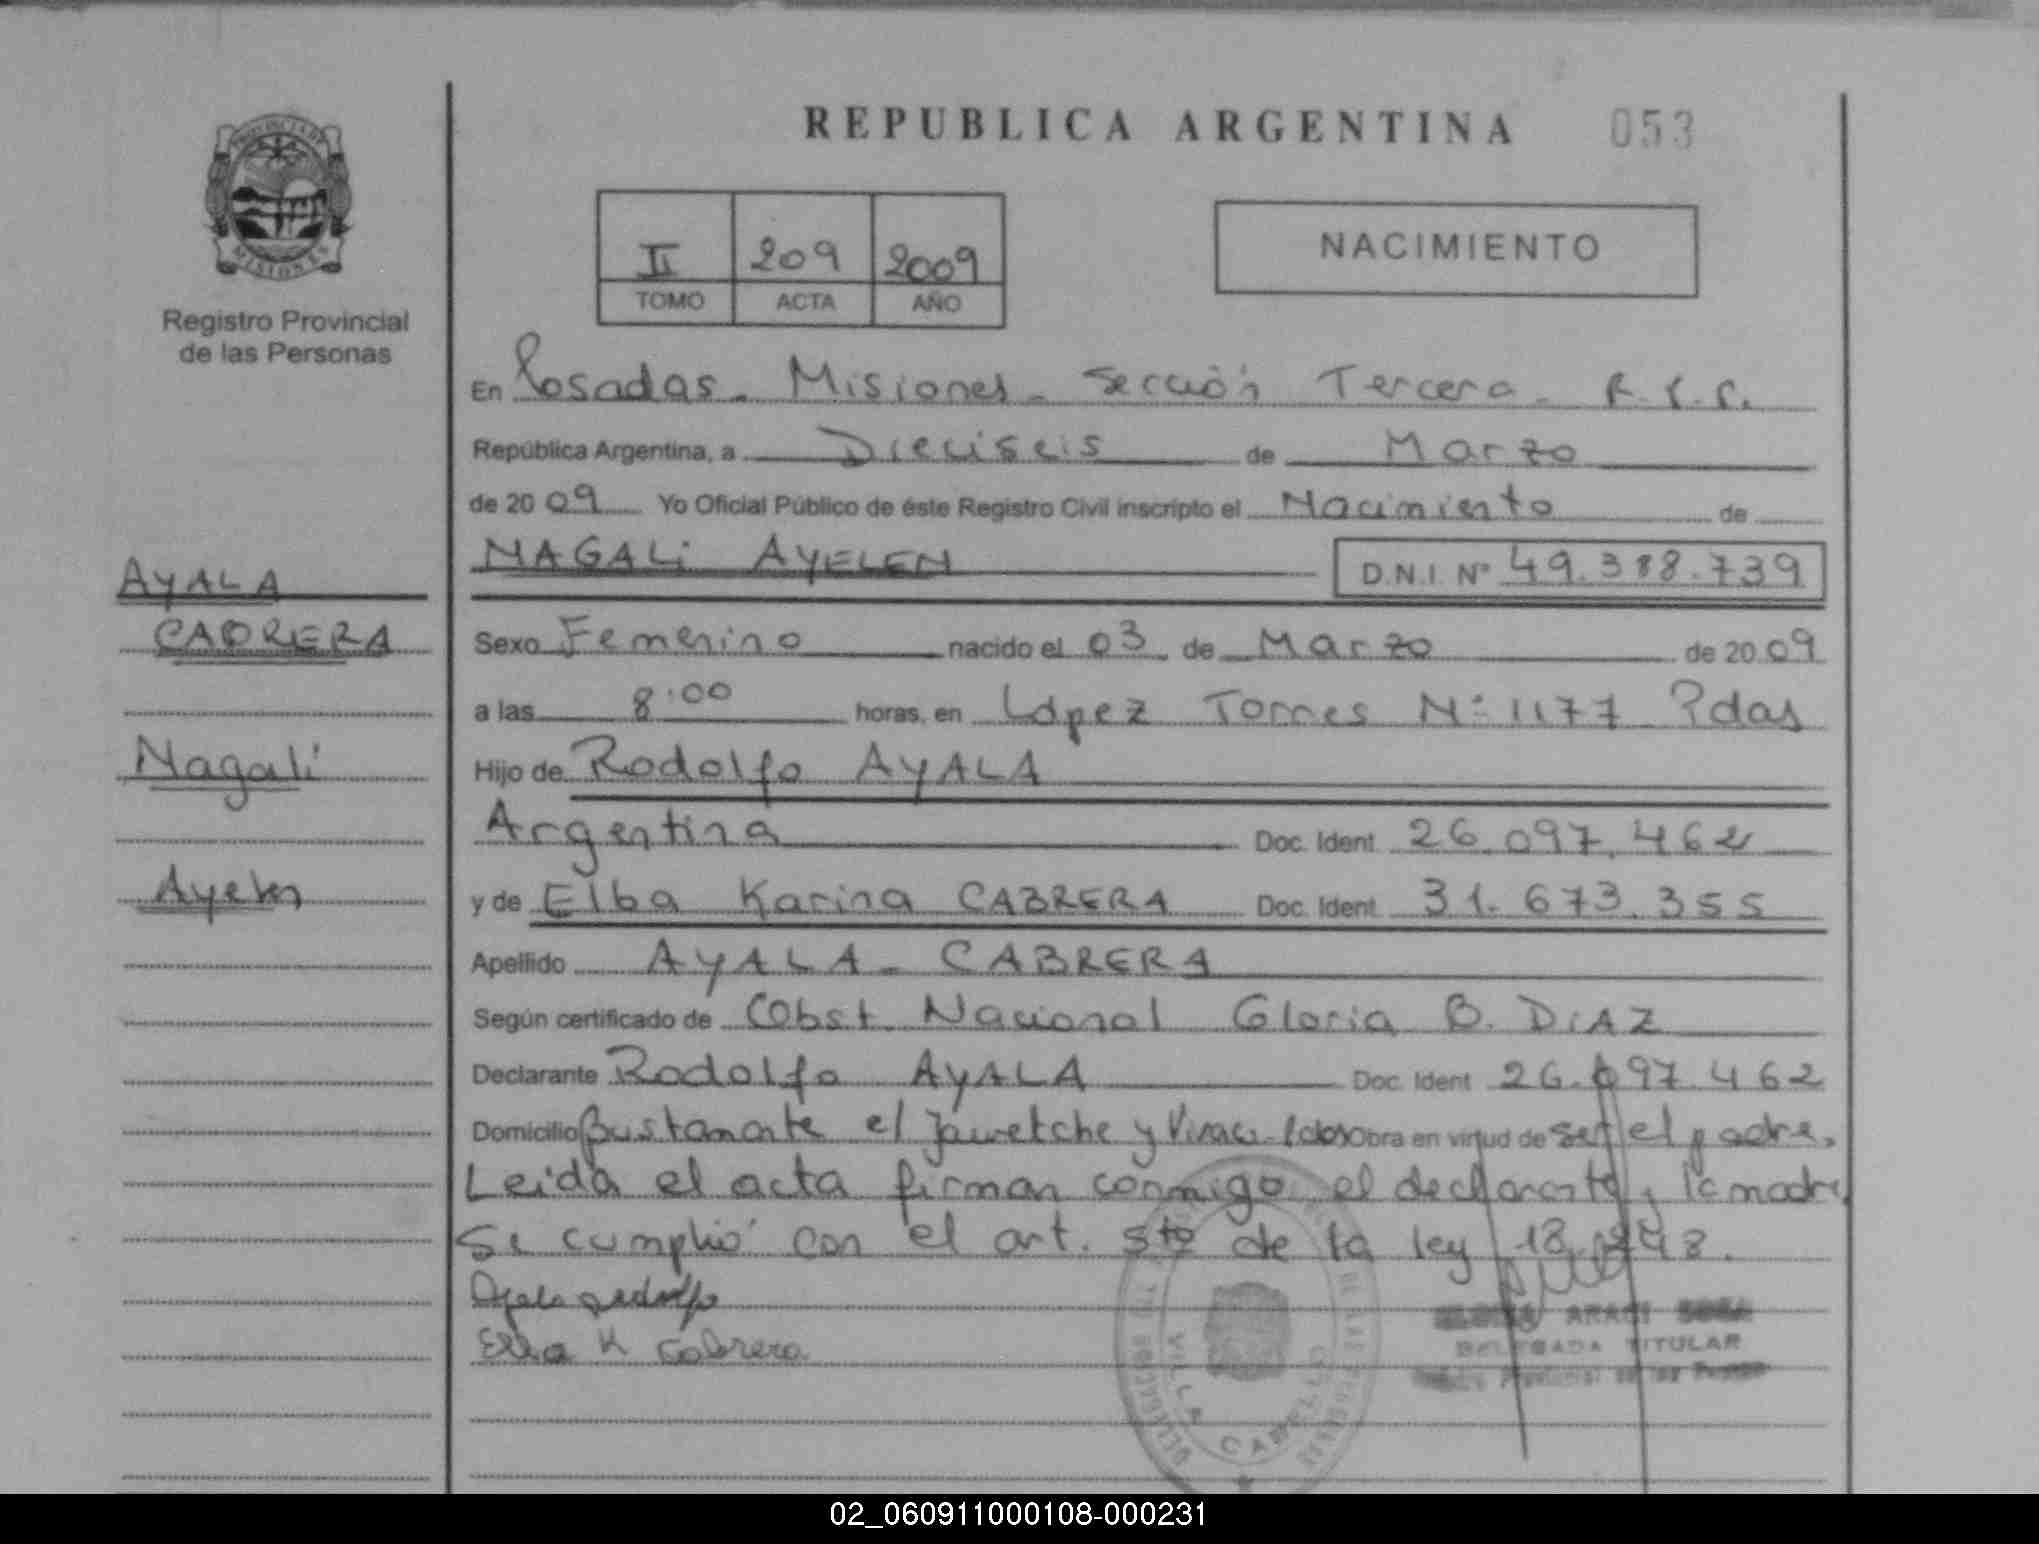 REPUBLICA ARGENTINA 053
PROVINCIA DE
MISIONES
Registro Provincial
de las Personas
II 209 2009
TOMO ACTA AÑO
NACIMIENTO
En Posadas. Misiones. Sección Tercera.
República Argentina, a Dieciseis de Marzo
de 20 09 Yo Oficial Público de éste Registro Civil inscripto el Nacimiento de
MAGALI AYELEN D.N.I. Nº 49.388.739
AYALA
CABRERA
Magali
Ayelen
Sexo Femenino nacido el 03 de Marzo de 20 09
a las 8:00 horas, en López Torres Nº 1177 Pdas
Hijo de Rodolfo AYALA
Argentina Doc. Ident. 26.097.462
y de Elba Karina CABRERA Doc. Ident. 31.673.355
Apellido AYALA - CABRERA
Según certificado de Obst. Nacional Gloria B. DIAZ
Declarante Rodolfo AYALA Doc. Ident 26.097.462
Domicilio Bustamante e/ Jauretche y obra en virtud de ser el padre.
Leida el acta firman conmigo el declarante y la madre
Se cumplió con el art. 5to de la ley
Ayala Rodolfo
Elba K Cabrera
ARACI SOSA
DELEGADA TITULAR
Registro Provincial de las Personas
VILLA CABELLO
02_060911000108-000231